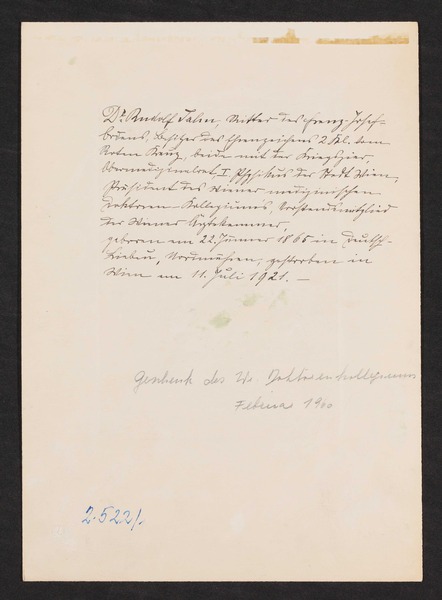 Dr. Rudolf Jahn, Ritter des Franz-Josef-
Ordens, Besitzer des Ehrenzeichens 2. Kl. vom
Roten Kreuz, beide mit der Kriegszier,
Obermedizinalrat, I. Physikus der Stadt Wien,
Präsident des Wiener medizinischen
Doktoren-Kollegiums, Vorstandsmitglied
der Wiener Ärztekammer,
geboren am 22. Jänner 1865 in Deutsch-
Liebau, Nordmähren, gestorben in
Wien am 11. Juli 1921. —
Geschenk des W. Doktorenkollegiums
Februar 1960
2.522/